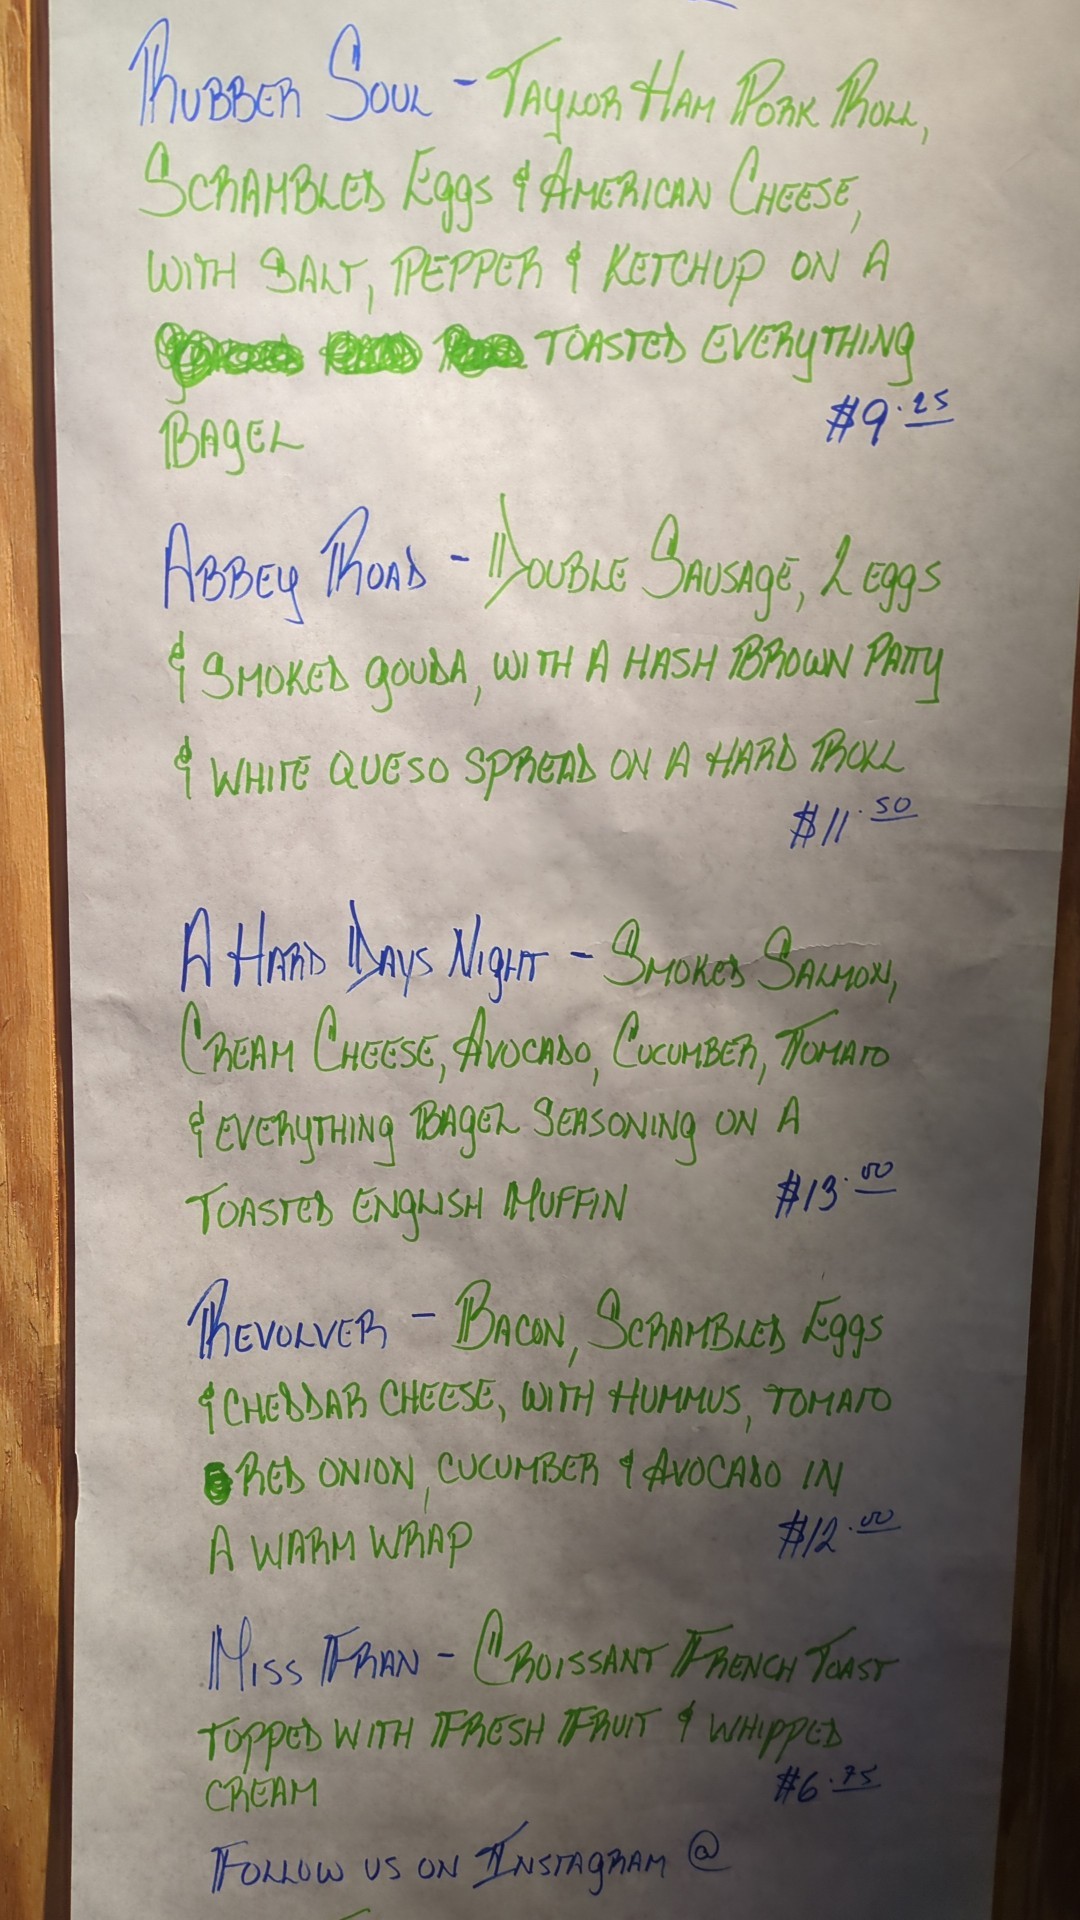 Rubber Soul - Taylor Ham Pork Roll,
Scrambled Eggs & American Cheese,
with Salt, Pepper & Ketchup on a
Toasted Everything
Bagel
$9.25
Abbey Road - Double Sausage, 2 eggs
& Smoked Gouda, with a Hash Brown Patty
& White Queso Spread on a Hard Roll
$11.50
A Hard Days Night - Smoked Salmon,
Cream Cheese, Avocado, Cucumber, Tomato
& Everything Bagel Seasoning on a
Toasted English Muffin $13.00
Revolver - Bacon, Scrambled Eggs
& Cheddar Cheese, with Hummus, Tomato
Red Onion, Cucumber & Avocado in
a Warm Wrap $12.00
Miss Fran - Croissant French Toast
Topped with Fresh Fruit & Whipped
Cream $6.75
Follow us on Instagram @